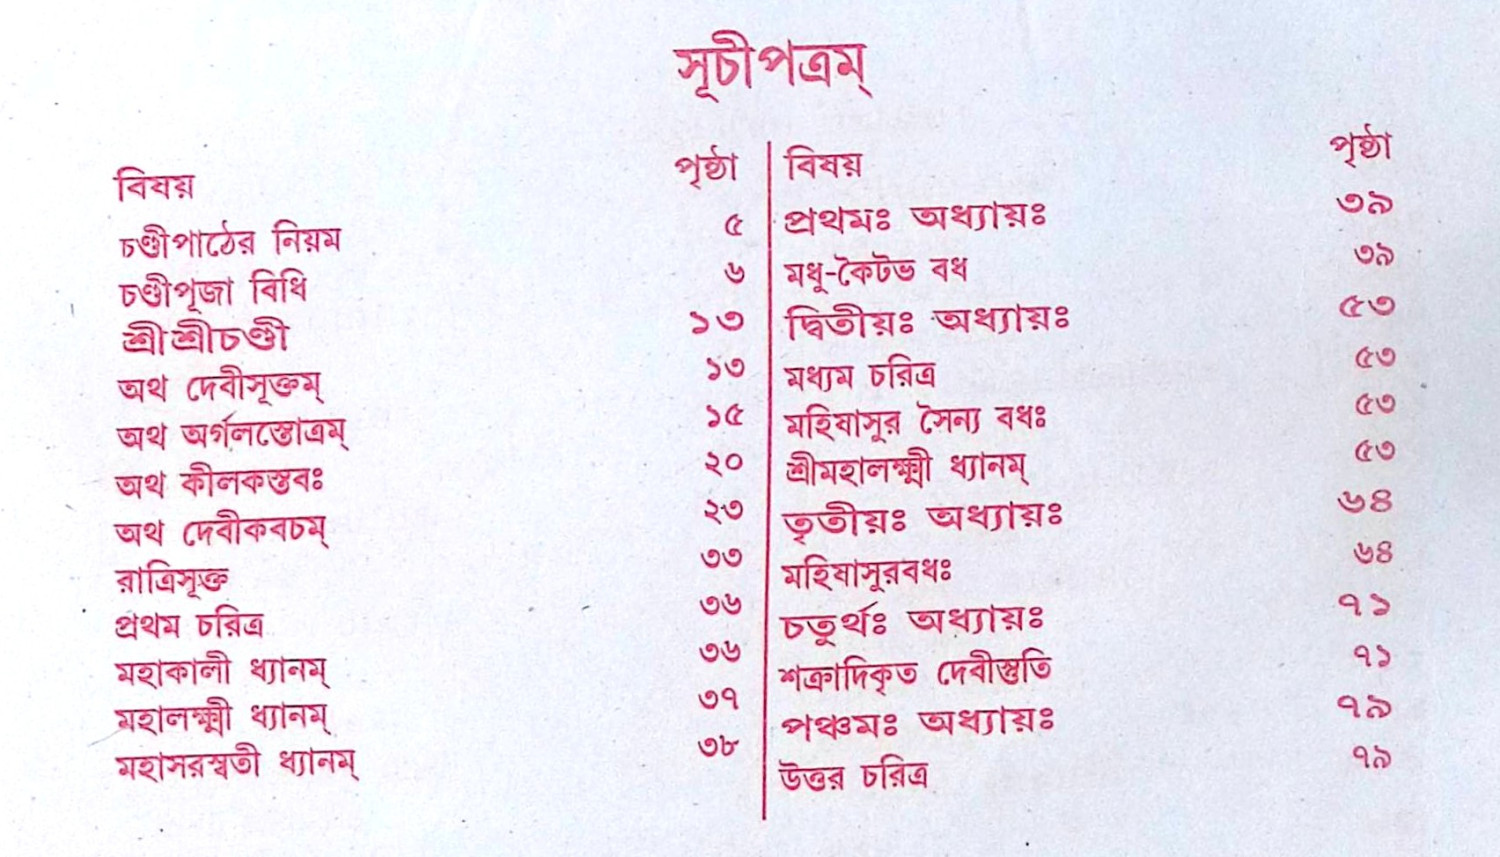 সূচীপত্রম্
বিষয় পৃষ্ঠা
চণ্ডীপাঠের নিয়ম ৫
চণ্ডীপূজা বিধি ৬
শ্রীশ্রীচণ্ডী ১৩
অথ দেবীসূক্তম্ ১৩
অথ অর্গলস্তোত্রম্ ১৫
অথ কীলকস্তবঃ ২০
অথ দেবীকবচম্ ২৩
রাত্রিসূক্ত ৩৩
প্রথম চরিত্র ৩৬
মহাকালী ধ্যানম্ ৩৬
মহালক্ষ্মী ধ্যানম্ ৩৭
মহাসরস্বতী ধ্যানম্ ৩৮
বিষয় পৃষ্ঠা
প্রথমঃ অধ্যায়ঃ ৩৯
মধূ-কৈটভ বধ ৩৯
দ্বিতীয়ঃ অধ্যায়ঃ ৫৩
মধ্যম চরিত্র ৫৩
মহিষাসুর সৈন্য বধঃ ৫৩
শ্রীমহালক্ষ্মী ধ্যানম্ ৫৩
তৃতীয়ঃ অধ্যায়ঃ ৬৪
মহিষাসুরবধঃ ৬৪
চতুর্থঃ অধ্যায়ঃ ৭১
শক্রাদিকৃত দেবীস্তুতি ৭১
পঞ্চমঃ অধ্যায়ঃ ৭৯
উত্তর চরিত্র ৭৯